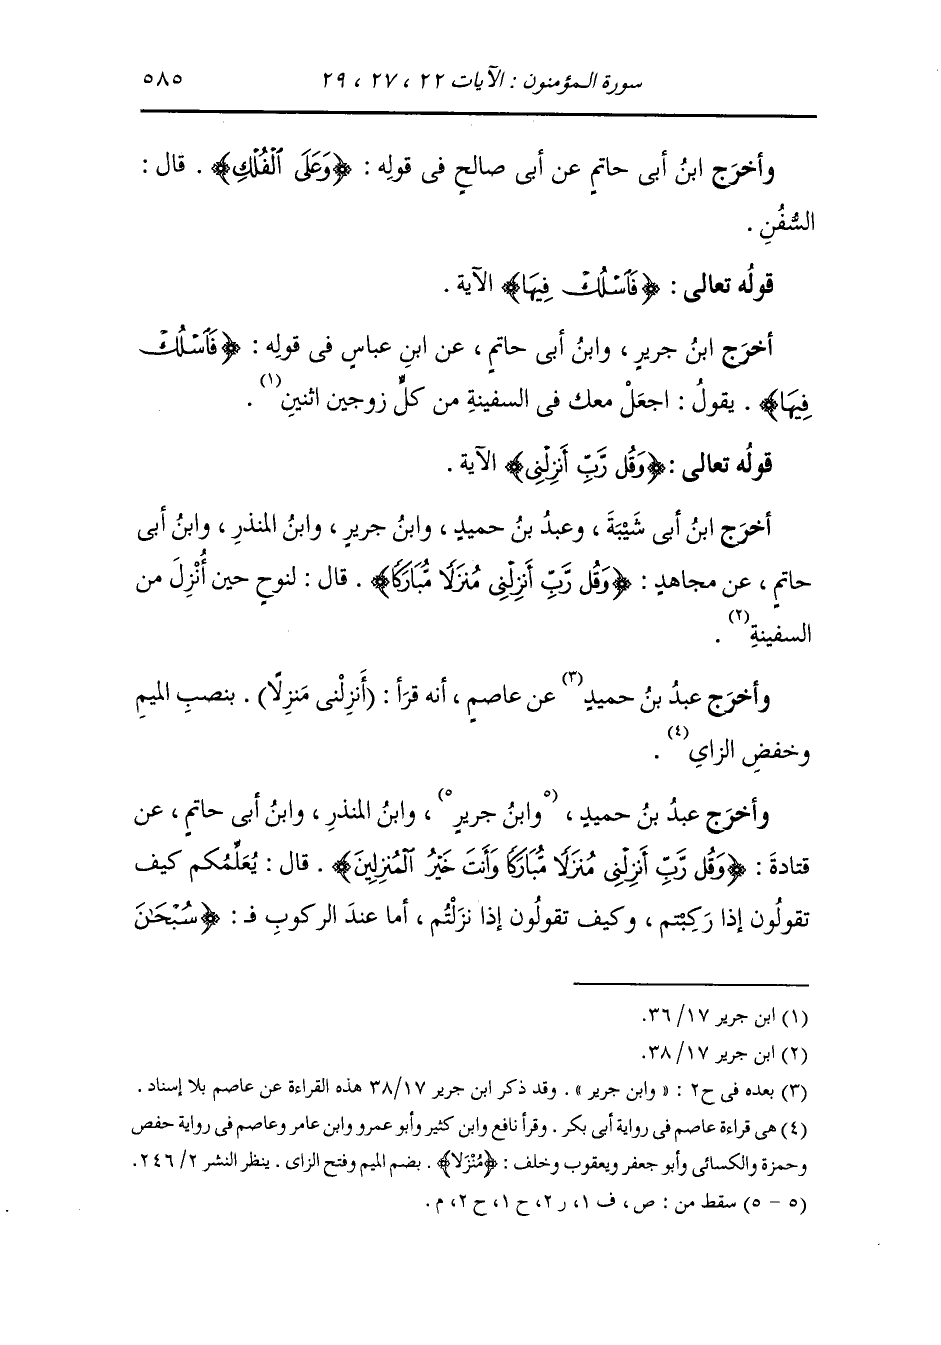 سورة المؤمنون : الآيات ٢٢ ، ٢٧ ، ٢٩ ٥٨٥
وأخرَج ابنُ أبى حاتمٍ عن أبى صالحٍ فى قولِه : ﴿وَعَلَى ٱلْفُلْكِ﴾ . قال :
السُّفُنِ .
قولُه تعالى : ﴿فَٱسْلُكْ فِيهَا﴾ الآية .
أخرَج ابنُ جريرٍ ، وابنُ أبى حاتمٍ ، عن ابنِ عباسٍ فى قولِه : ﴿فَٱسْلُكْ
فِيهَا﴾ . يقولُ : اجعَلْ معك فى السفينةِ من كلٍّ زوجين اثنينِ(١) .
قولُه تعالى : ﴿وَقُل رَّبِّ أَنزِلْنِى﴾ الآية .
أخرَج ابنُ أبى شَيْبَةَ ، وعبدُ بنُ حميدٍ ، وابنُ جريرٍ ، وابنُ المنذرِ ، وابنُ أبى
حاتمٍ ، عن مجاهدٍ : ﴿وَقُل رَّبِّ أَنزِلْنِى مُنزَلًا مُّبَارَكًا﴾ . قال : لنوحٍ حين أُنْزِلَ من
السفينةِ(٢) .
وأخرَج عبدُ بنُ حميدٍ(٣) عن عاصمٍ ، أنه قرَأ : (أَنزِلْنى مَنزِلًا) . بنصبِ الميمِ
وخفضِ الزايِ(٤) .
وأخرَج عبدُ بنُ حميدٍ ، (٥وابنُ جريرٍ٥) ، وابنُ المنذرِ ، وابنُ أبى حاتمٍ ، عن
قتادةَ : ﴿وَقُل رَّبِّ أَنزِلْنِى مُنزَلًا مُّبَارَكًا وَأَنتَ خَيْرُ ٱلْمُنزِلِينَ﴾ . قال : يُعَلِّمُكم كيف
تقولُون إذا رَكِبْتم ، وكيف تقولُون إذا نزَلْتُم ، أما عندَ الركوبِ فـ : ﴿سُبْحَٰنَ
(١) ابن جرير ١٧/ ٣٦.
(٢) ابن جرير ١٧/ ٣٨.
(٣) بعده فى ح٢ : « وابن جرير » . وقد ذكر ابن جرير ٣٨/١٧ هذه القراءة عن عاصم بلا إسناد .
(٤) هى قراءة عاصم فى رواية أبى بكر . وقرأ نافع وابن كثير وأبو عمرو وابن عامر وعاصم فى رواية حفص
وحمزة والكسائى وأبو جعفر ويعقوب وخلف : ﴿مُنْزَلًا﴾ . بضم الميم وفتح الزاى . ينظر النشر ٢/ ٢٤٦.
(٥ - ٥) سقط من : ص ، ف ١، ر ٢، ح ١، ح ٢، م .